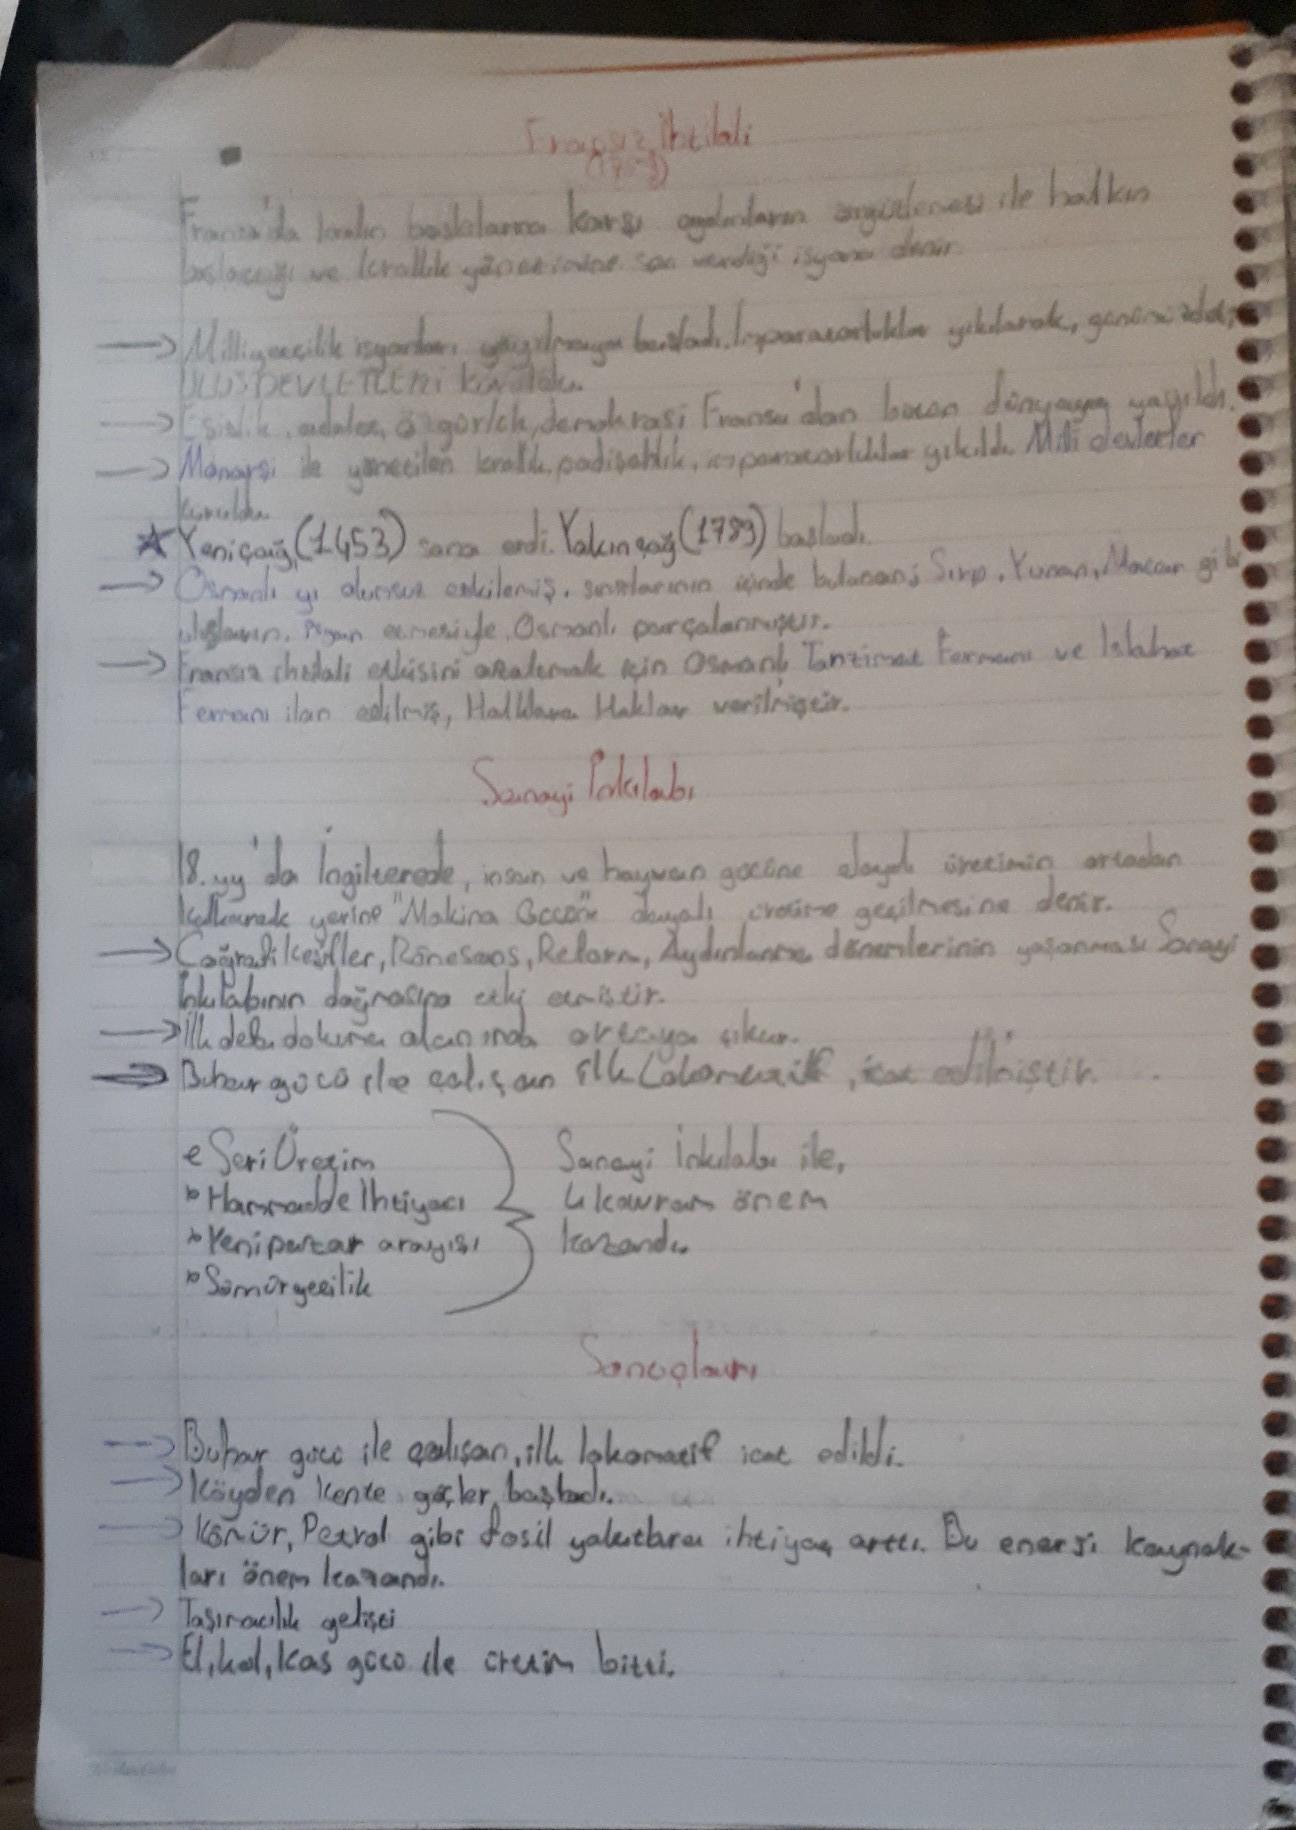 Fransız İhtilali
(1789)
Fransa'da kralın baskılarına karşı aydınların örgütlemesi ile halkın
başlattığı ve krallık yönetimine son verdiği isyana denir.
→ Milliyetçilik isyanları yayılmaya başladı. İmparatorluklar yıkılarak, günümüzdeki
ULUS DEVLETLERİ kuruldu.
→ Eşitlik, adalet, özgürlük, demokrasi Fransa'dan bütün dünyaya yayıldı.
→ Monarşi ile yönetilen krallık, padişahlık, imparatorluklar yıkıldı. Milli devletler
kuruldu.
★ Yeniçağ (1453) sona erdi. Yakınçağ (1789) başladı.
→ Osmanlı yı olumsuz etkilemiş, sınırlarının içinde bulunan; Sırp, Yunan, Macar gibi
ulusların, isyan etmesiyle, Osmanlı parçalanmıştır.
→ Fransız ihtilali etkisini azaltmak için Osmanlı Tanzimat Fermanı ve Islahat
Fermanı ilan edilmiş, Halklara Haklar verilmiştir.
Sanayi İnkılabı
18. yy'da İngilterede, insan ve hayvan gücüne dayalı üretimin ortadan
kalkarak yerine "Makina Gücüne" dayalı üretime geçilmesine denir.
→ Coğrafi Keşifler, Rönesans, Reform, Aydınlanma dönemlerinin yaşanması Sanayi
İnkılabının doğmasına etki etmiştir.
→ İlk defa dokuma alanında ortaya çıkar.
→ Buhar gücü ile çalışan ilk Lokomotif, icat edilmiştir.
• Seri Üretim
• Hammadde İhtiyacı
• Yeni pazar arayışı
• Sömürgecilik
Sanayi İnkılabı ile,
4 kavram önem
kazandı.
Sonuçları
→ Buhar gücü ile çalışan, ilk lokomotif icat edildi.
→ Köyden kente göçler başladı.
→ Kömür, Petrol gibi fosil yakıtlara ihtiyaç arttı. Bu enerji kaynak-
ları önem kazandı.
→ Taşımacılık gelişti
→ El, kol, kas gücü ile üretim bitti.